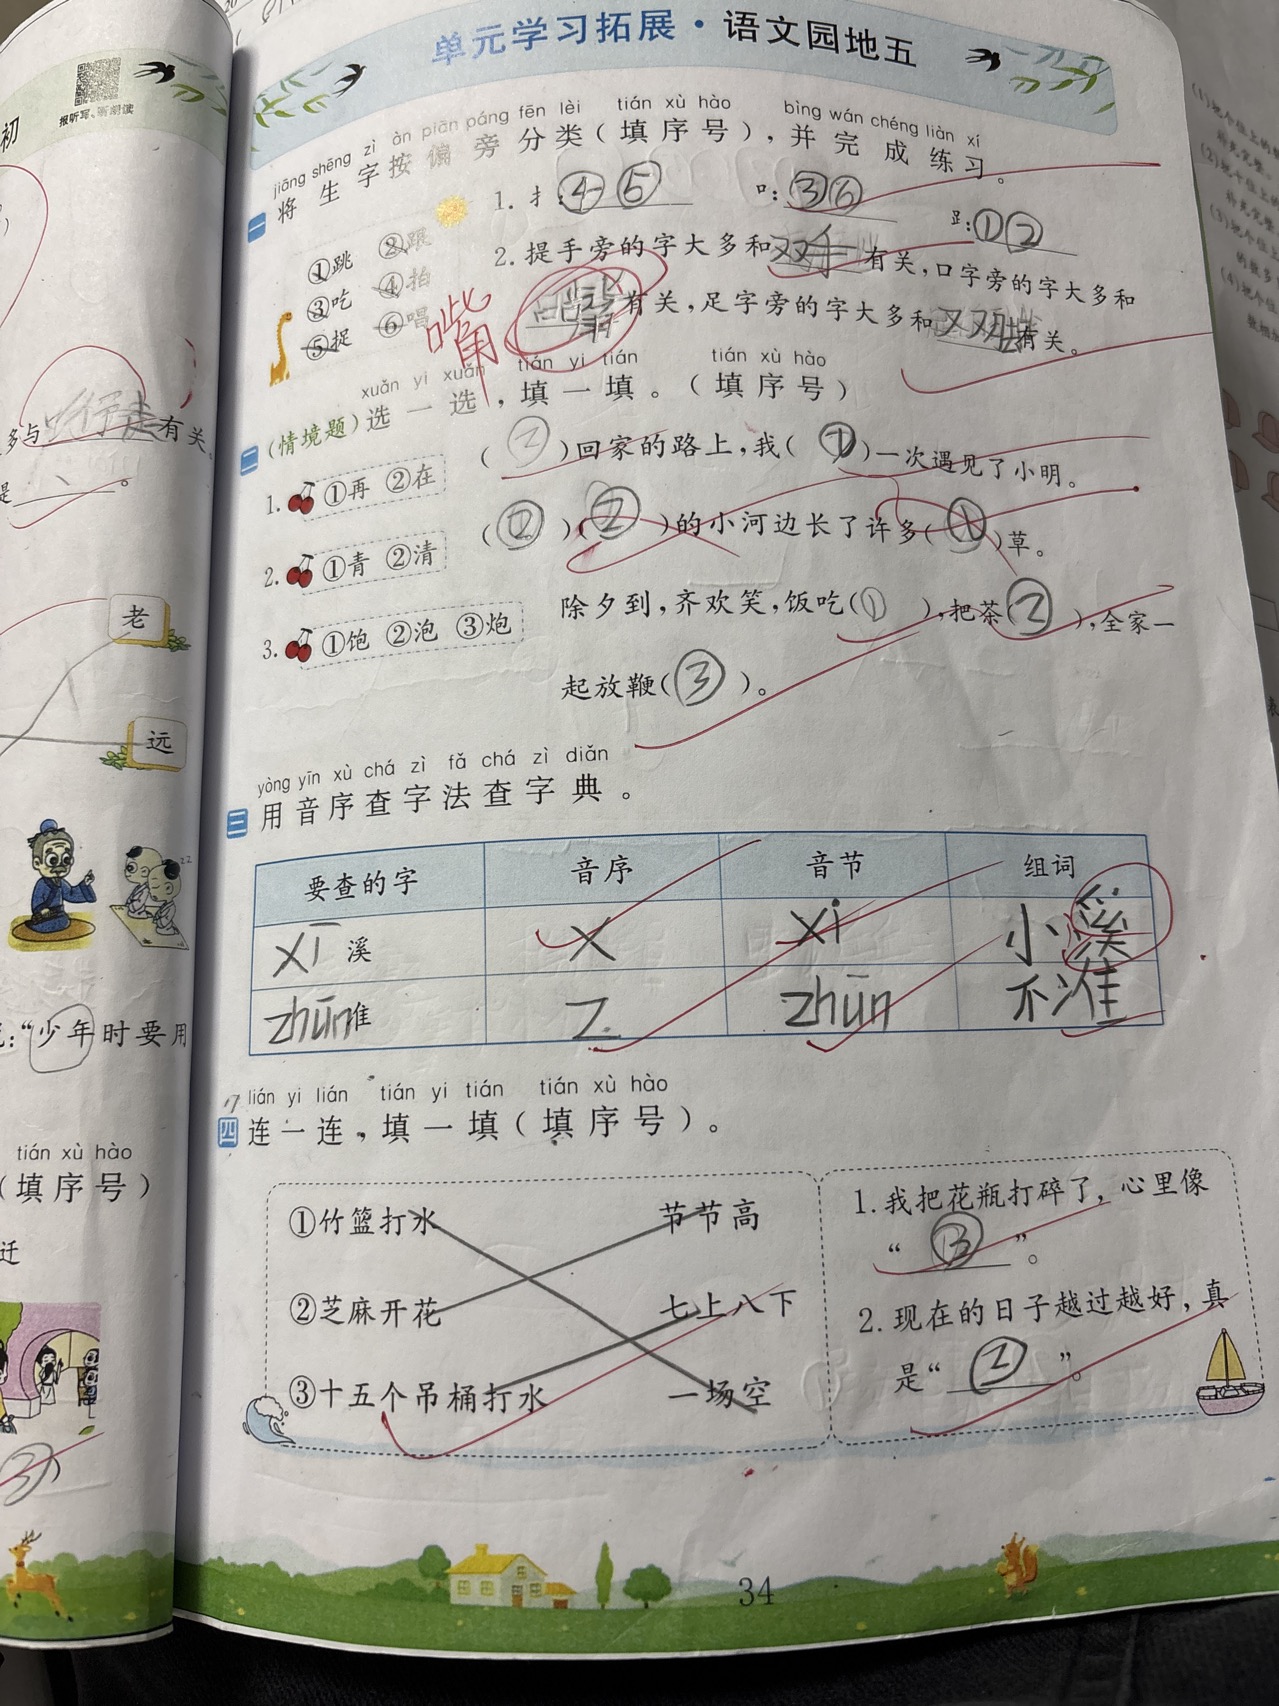 初
报听写、听朗读
单元学习拓展·语文园地五
jiāng shēng zì àn piān páng fēn lèi tián xù hào bìng wán chéng liàn xí
一 将生字按偏旁分类(填序号),并完成练习。
①跳 ②跟
③吃 ④拍
⑤捉 ⑥唱
1. 扌:④⑤ 口:③⑥ 𧾷:①②
2. 提手旁的字大多和双手有关,口字旁的字大多和
嘴有关,足字旁的字大多和双脚有关。
嘴
xuǎn yi xuǎn tián yi tián tián xù hào
二 (情境题)选一选,填一填。(填序号)
1. ①再 ②在
(②)回家的路上,我(①)一次遇见了小明。
2. ①青 ②清
(②)(②)的小河边长了许多(①)草。
3. ①饱 ②泡 ③炮
除夕到,齐欢笑,饭吃(①),把茶(②),全家一
起放鞭(③)。
yòng yīn xù chá zì fǎ chá zì diǎn
三 用音序查字法查字典。
要查的字 音序 音节 组词
xī 溪 X xi 小溪
zhǔn准 Z zhūn 不准
lián yi lián tián yi tián tián xù hào
四 连一连,填一填(填序号)。
①竹篮打水 节节高
②芝麻开花 七上八下
③十五个吊桶打水 一场空
1. 我把花瓶打碎了,心里像
“③”。
2. 现在的日子越过越好,真
是“②”。
34
多与行走有关。
是
老
远
:“少年时要用
tián xù hào
(填序号)
迁